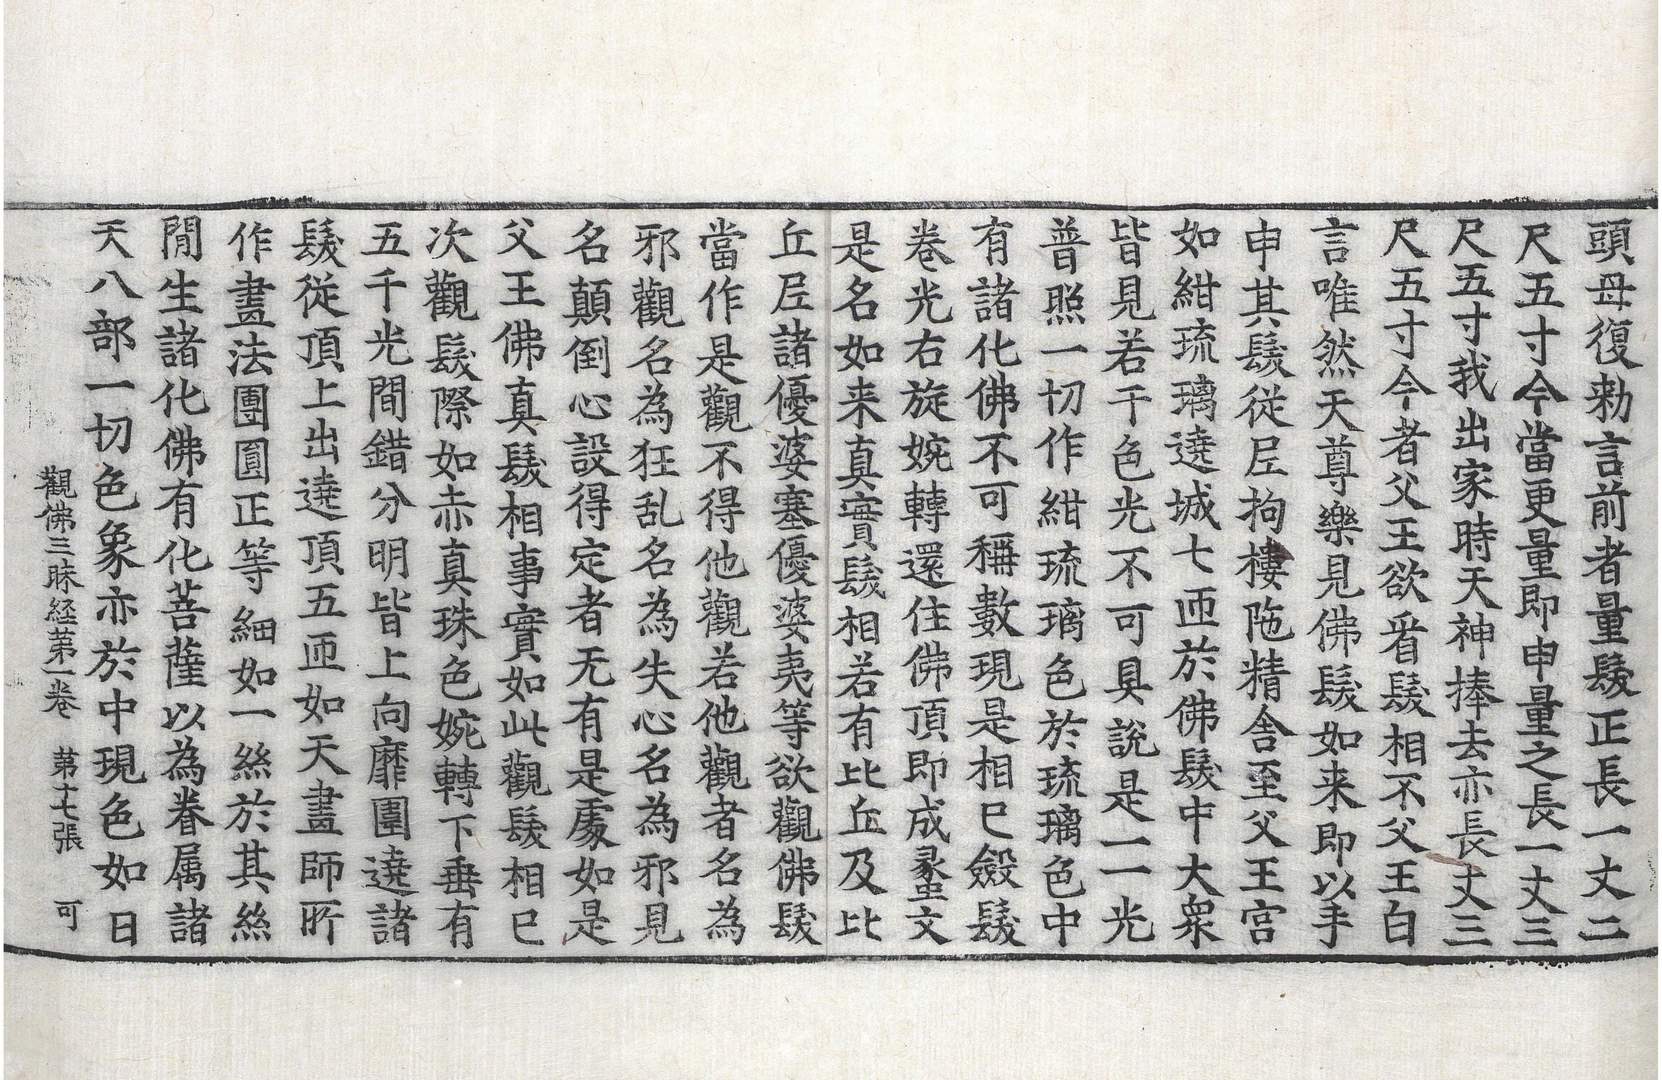 頭母復勑言前者量髮正長一丈二
尺五寸今當更量即申量之長一丈三
尺五寸我出家時天神捧去亦長丈三
尺五寸今者父王欲看髮相不父王白
言唯然天尊樂見佛髮如来即以手
申其髮從𡰱拘樓陁精舎至父王宮
如紺琉璃遶城七匝於佛髮中大衆
皆見若干色光不可具說是一一光
普照一切作紺琉璃色於琉璃色中
有諸化佛不可稱數現是相已斂髮
卷光右旋婉轉還住佛頂即成蠡文
是名如来真實髮相若有比丘及比
丘𡰱諸優婆塞優婆夷等欲觀佛髮
當作是觀不得他觀若他觀者名為
邪觀名為狂乱名為失心名為邪見
名顛倒心設得定者无有是處如是
父王佛真髮相事實如此觀髮相已
次觀髮際如赤真珠色婉轉下垂有
五千光間錯分明皆上向靡圍遶諸
髮從頂上出遶頂五匝如天畫師所
作畫法團圓正等細如一絲於其絲
間生諸化佛有化菩薩以為眷属諸
天八部一切色象亦於中現色如日
觀佛三昧経苐一卷 苐十七張 可